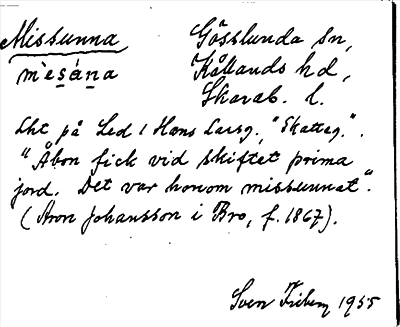 Missunna Gösslunda sn,
mèsána Kållands hd,
Skarab. l.
Lht på Led 1 Hans Larsg. "Skatteg.".
"Åbon fick vid skiftet prima
jord. Det var honom missunnat".
(Aron Johansson i Bro, f. 1867).
Sven Friberg 1955